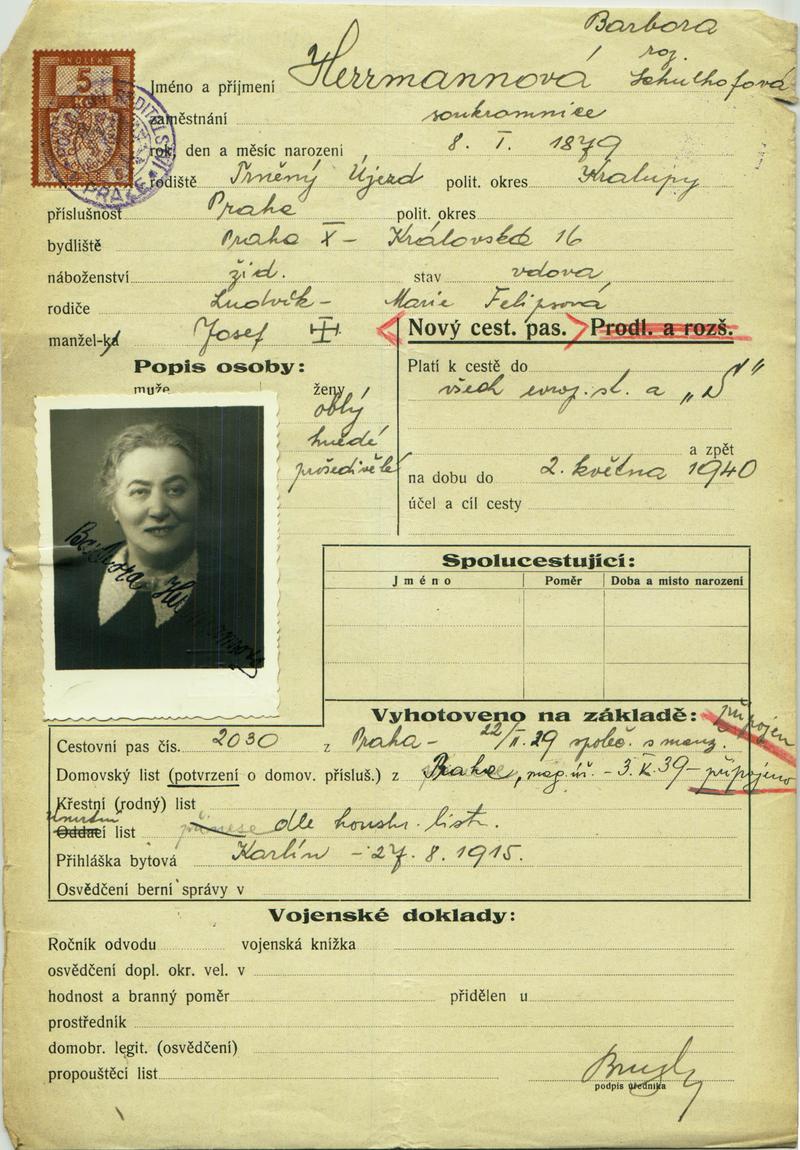 Barbora
Jméno a příjmení Herrmannová roz. Schulhofová
KOLEK
5
Kč
PRAHA
zaměstnání soukromnice
rok, den a měsíc narození 8. I. 1879
rodiště Trněný Újezd polit. okres Kralupy
příslušnost Praha polit. okres
bydliště Praha X – Královská 16
náboženství žid. stav vdova
rodiče Ludvík – Marie Felixová
manžel-ka Josef
Nový cest. pas. Prodl. a rozš.
Popis osoby:
muže ženy
oblý
hnědé
prošedivělé
Platí k cestě do
všech evrop. st. a „S"
a zpět
na dobu do 2. května 1940
účel a cíl cesty
Barbora Herrmannová
Spolucestující:
Jméno Poměr Doba a místo narození
Vyhotoveno na základě: připojen
Cestovní pas čís. 2030 z Praha – 22/II. 29 společ. s manž.
Domovský list (potvrzení o domov. přísluš.) z Praha, mag. úř. – 3. 39 – připojeno
Křestní (rodný) list
Úmrtní
Oddací list přinese dle housh. listu.
Přihláška bytová Karlín – 27. 8. 1915.
Osvědčení berní správy v
Vojenské doklady:
Ročník odvodu vojenská knížka
osvědčení dopl. okr. vel. v
hodnost a branný poměr přidělen u
prostředník
domobr. legit. (osvědčení)
propouštěcí list
podpis úředníka